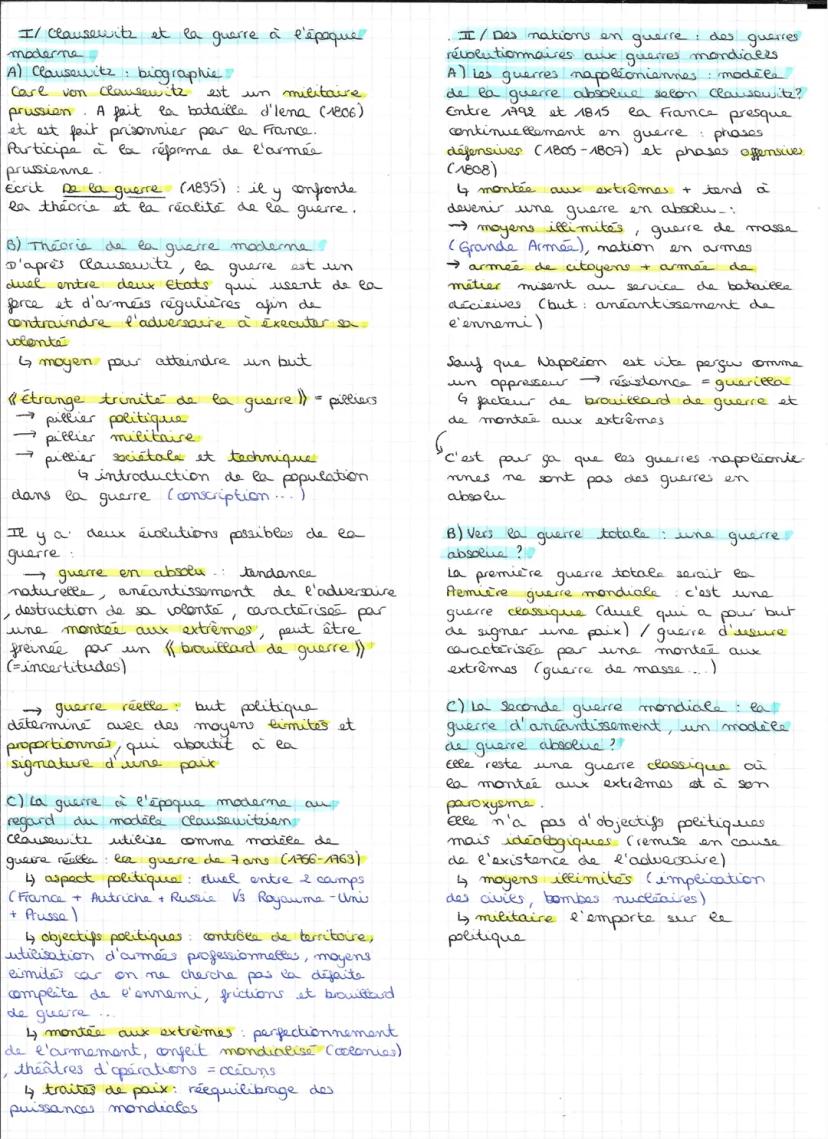 I/ Clausewitz et la guerre à l'époque
moderne
A) Clausewitz : biographie
Carl von Clausewitz est un militaire
prussien. A fait la bataille d'Iena (1806)
et est fait prisonnier par la France.
Participe à la réforme de l'armée
prussienne.
Écrit De la guerre (1835) : il y confronte
la théorie et la réalité de la guerre.
B) Théorie de la guerre moderne
D'après Clausewitz, la guerre est un
duel entre deux États qui usent de la
force et d'armées régulières afin de
contraindre l'adversaire à éxecuter sa
volonté
↳ moyen pour atteindre un but
《 Étrange trinité de la guerre 》 = pilliers
→ pillier politique
→ pillier militaire
→ pillier sociétale et technique
↳ introduction de la population
dans la guerre (conscription...)
Il y a deux évolutions possibles de la
guerre :
→ guerre en absolu : tendance
naturelle, anéantissement de l'adversaire
, destruction de sa volonté, caractérisée par
une montée aux extrêmes, peut être
freinée par un 《 brouillard de guerre 》
(=incertitudes)
→ guerre réelle : but politique
déterminé avec des moyens limités et
proportionnés, qui aboutit à la
signature d'une paix
C) La guerre à l'époque moderne au
regard du modèle Clausewitzien
Clausewitz utilise comme modèle de
guerre réelle : la guerre de 7 ans (1756-1763)
↳ aspect politique : duel entre 2 camps
(France + Autriche + Russie VS Royaume-Uni
+ Prusse)
↳ objectifs politiques : contrôle de territoire,
utilisation d'armées professionnelles, moyens
limités car on ne cherche pas la défaite
complète de l'ennemi, frictions et brouillard
de guerre ...
↳ montée aux extrêmes : perfectionnement
de l'armement, conflit mondialisé (colonies)
, théâtres d'opérations = océans
↳ traités de paix : rééquilibrage des
puissances mondiales
. II/ Des nations en guerre : des guerres
révolutionnaires aux guerres mondiales
A) Les guerres napoléoniennes : modèle
de la guerre absolue selon Clausewitz?
Entre 1792 et 1815 la France presque
continuellement en guerre : phases
défensives (1805-1807) et phases offensives
(1808)
↳ montée aux extrêmes + tend à
devenir une guerre en absolu :
→ moyens illimités, guerre de masse
(Grande Armée), nation en armes
→ armée de citoyens + armée de
métier misent au service de bataille
décisives (but : anéantissement de
l'ennemi)
Sauf que Napoléon est vite perçu comme
un oppresseur → résistance = guerilla
↳ facteur de brouillard de guerre et
de montée aux extrêmes
C'est pour ça que les guerres napoléonie-
nnes ne sont pas des guerres en
absolu
B) Vers la guerre totale : une guerre
absolue ?
La première guerre totale serait la
Première guerre mondiale : c'est une
guerre classique (duel qui a pour but
de signer une paix) / guerre d'usure
caractérisée par une montée aux
extrêmes (guerre de masse...)
C) La seconde guerre mondiale : la
guerre d'anéantissement, un modèle
de guerre absolue ?
Elle reste une guerre classique où
la montée aux extrêmes est à son
paroxysme.
Elle n'a pas d'objectifs politiques
mais idéologiques (remise en cause
de l'existence de l'adversaire)
↳ moyens illimités (implication
des civils, bombes nucléaires)
↳ militaire l'emporte sur le
politique